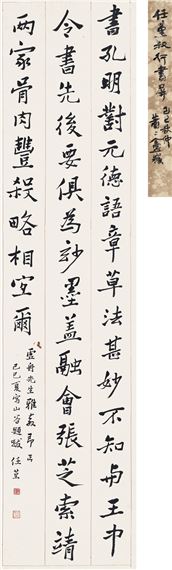 書孔明對元德語章草法甚妙不知與王中
令書先後要俱為妙墨蓋融會張芝索靖
兩家骨肉豐殺略相宜爾
雲舟先生雅教即正
己巳夏寫山谷題跋 任堇
任堇叔行書屏
己巳秋仲